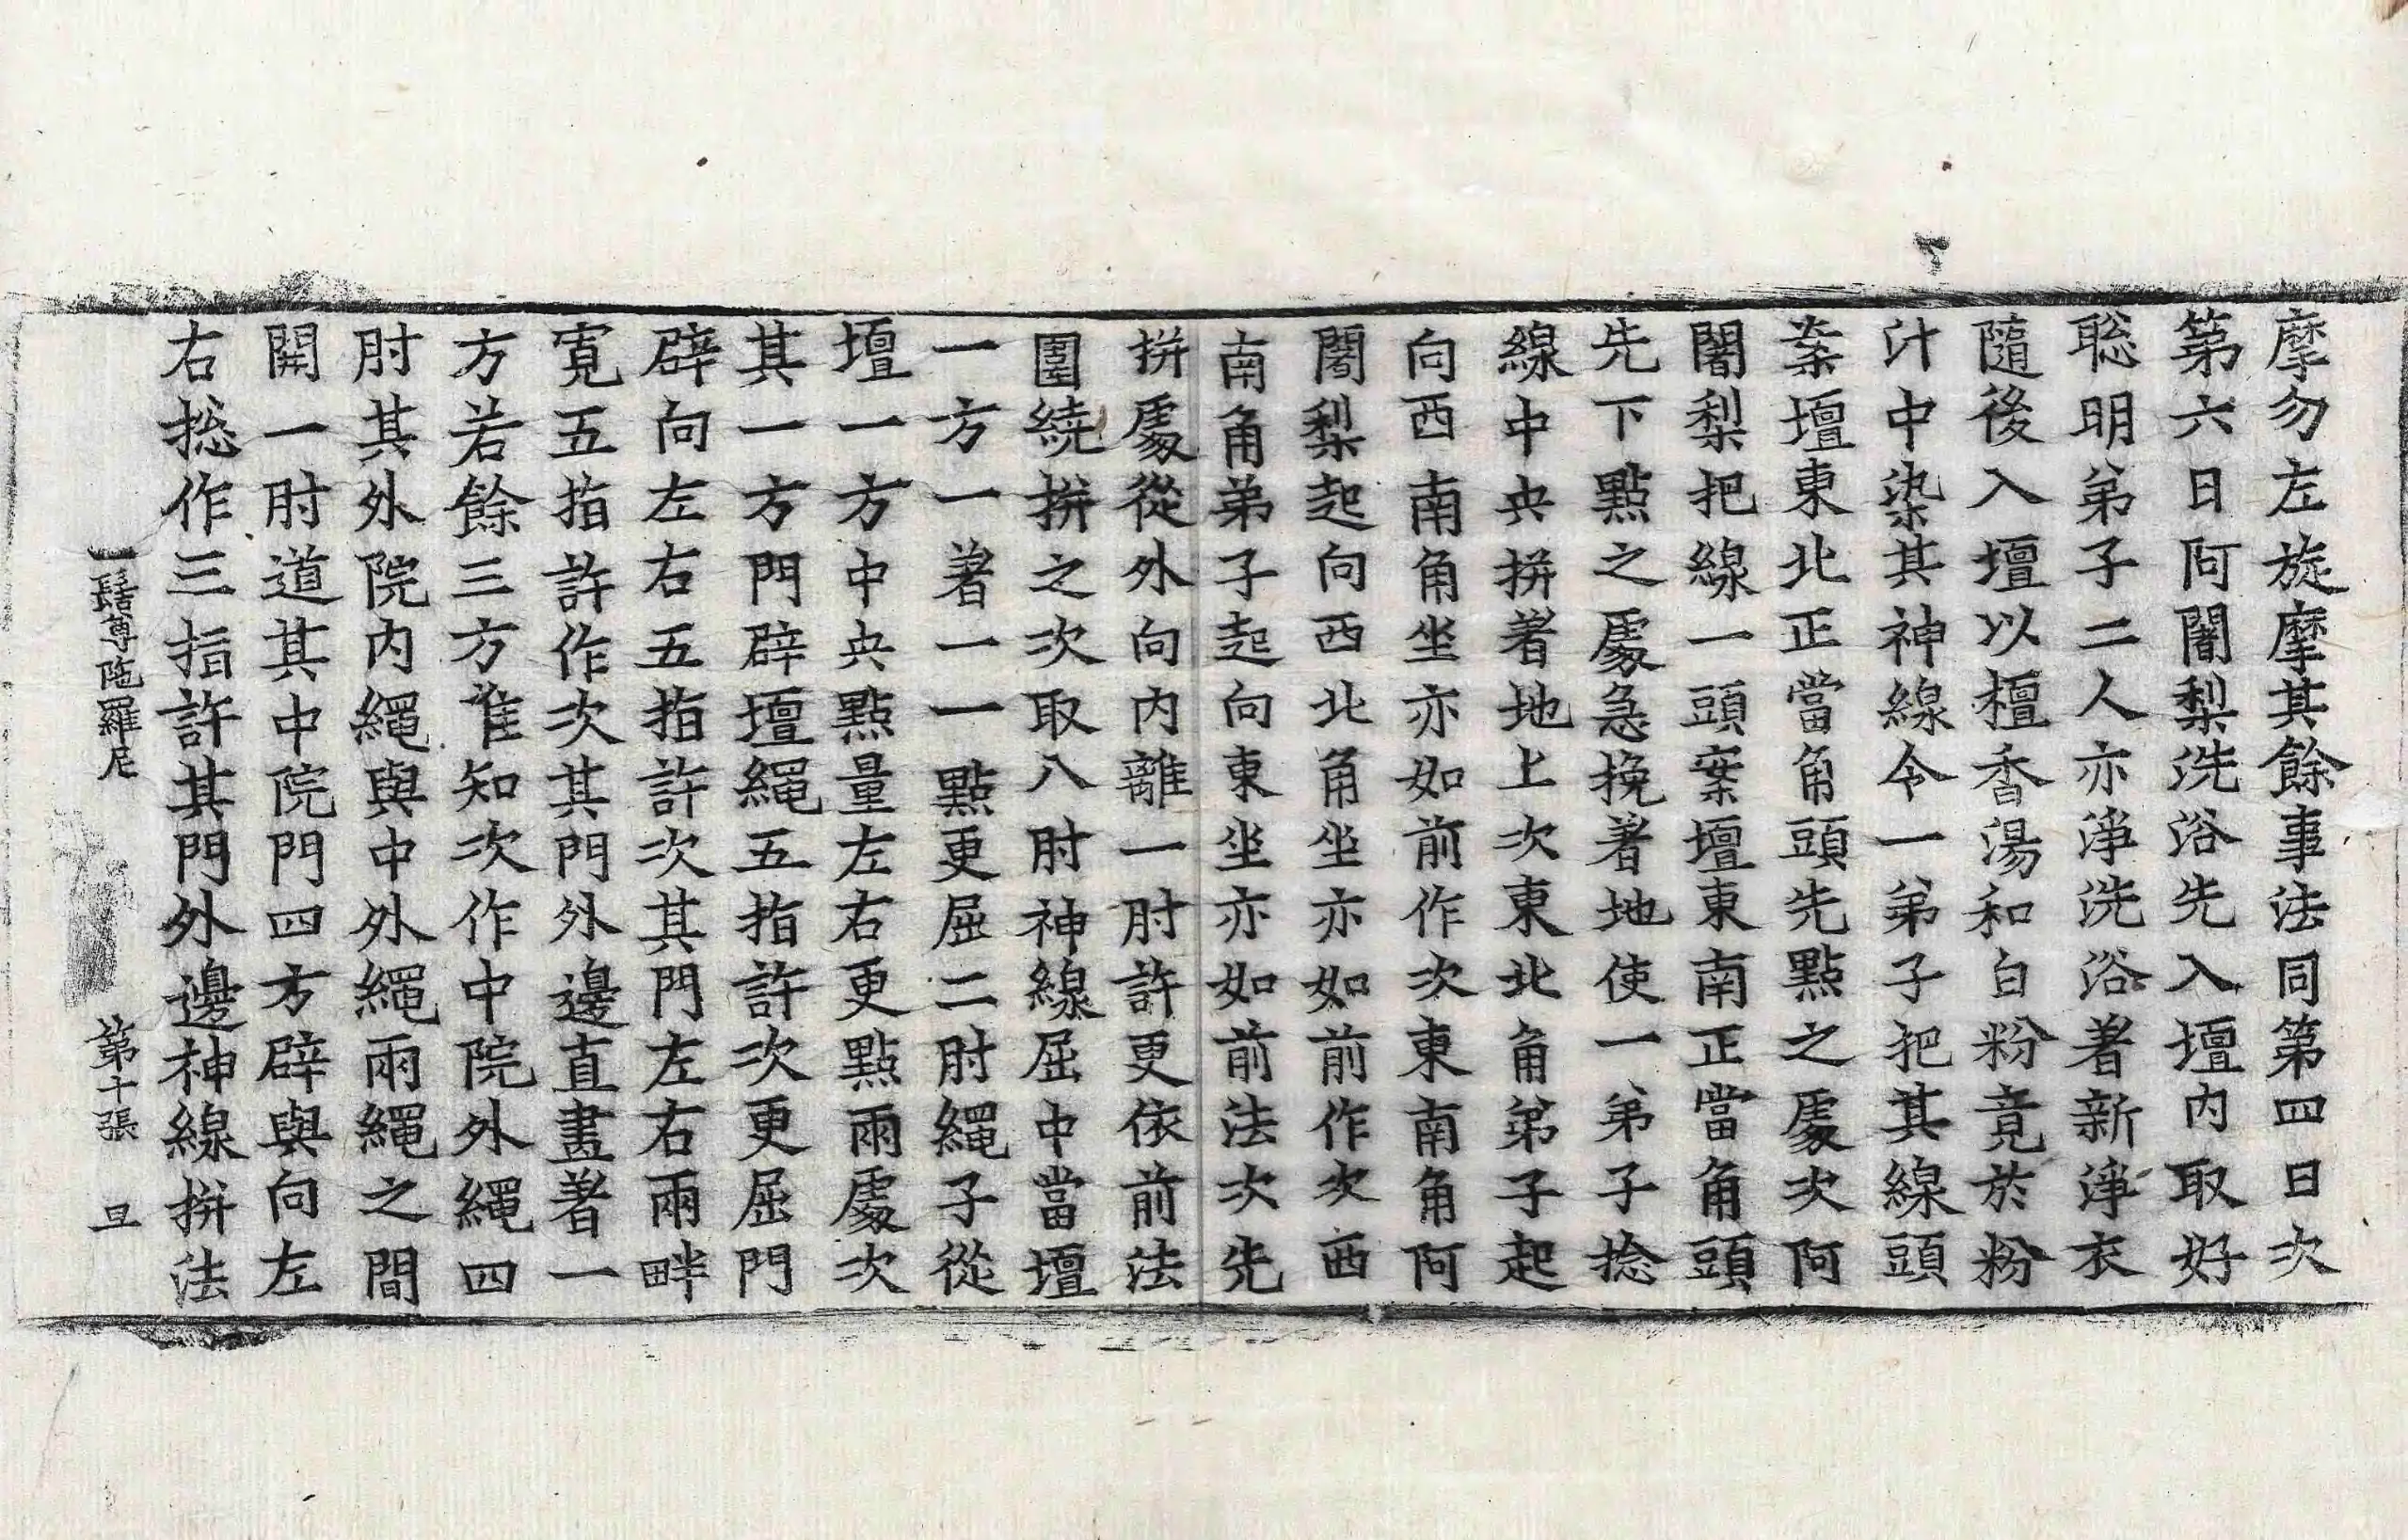 摩勿左旋摩其餘事法同第四日次
第六日阿闍梨洗浴先入壇内取好
聡明弟子二人亦淨洗浴著新淨衣
隨後入壇以檀香湯和白粉竟於粉
汁中染其神線令一弟子把其線頭
案壇東北正當角頭先點之處次阿
闍梨把線一頭案壇東南正當角頭
先下點之處急挽著地使一弟子捻
線中央拼著地上次東北角弟子起
向西南角坐亦如前作次東南角阿
闍梨起向西北角坐亦如前作次西
南角弟子起向東坐亦如前法次先
拼處從外向内離一肘許更依前法
圍繞拼之次取八肘神線屈中當壇
一方一著一一點更屈二肘繩子從
壇一方中央點量左右更點兩處次
其一方門辟壇繩五指許次更屈門
辟向左右五指許次其門左右兩畔
寛五指許作次其門外邊直畫著一
方若餘三方准知次作中院外繩四
肘其外院内繩與中外繩兩繩之間
開一肘道其中院門四方辟與向左
右捴作三指許其門外邊神線拼法
一髻尊陁羅尼 第十張 旦